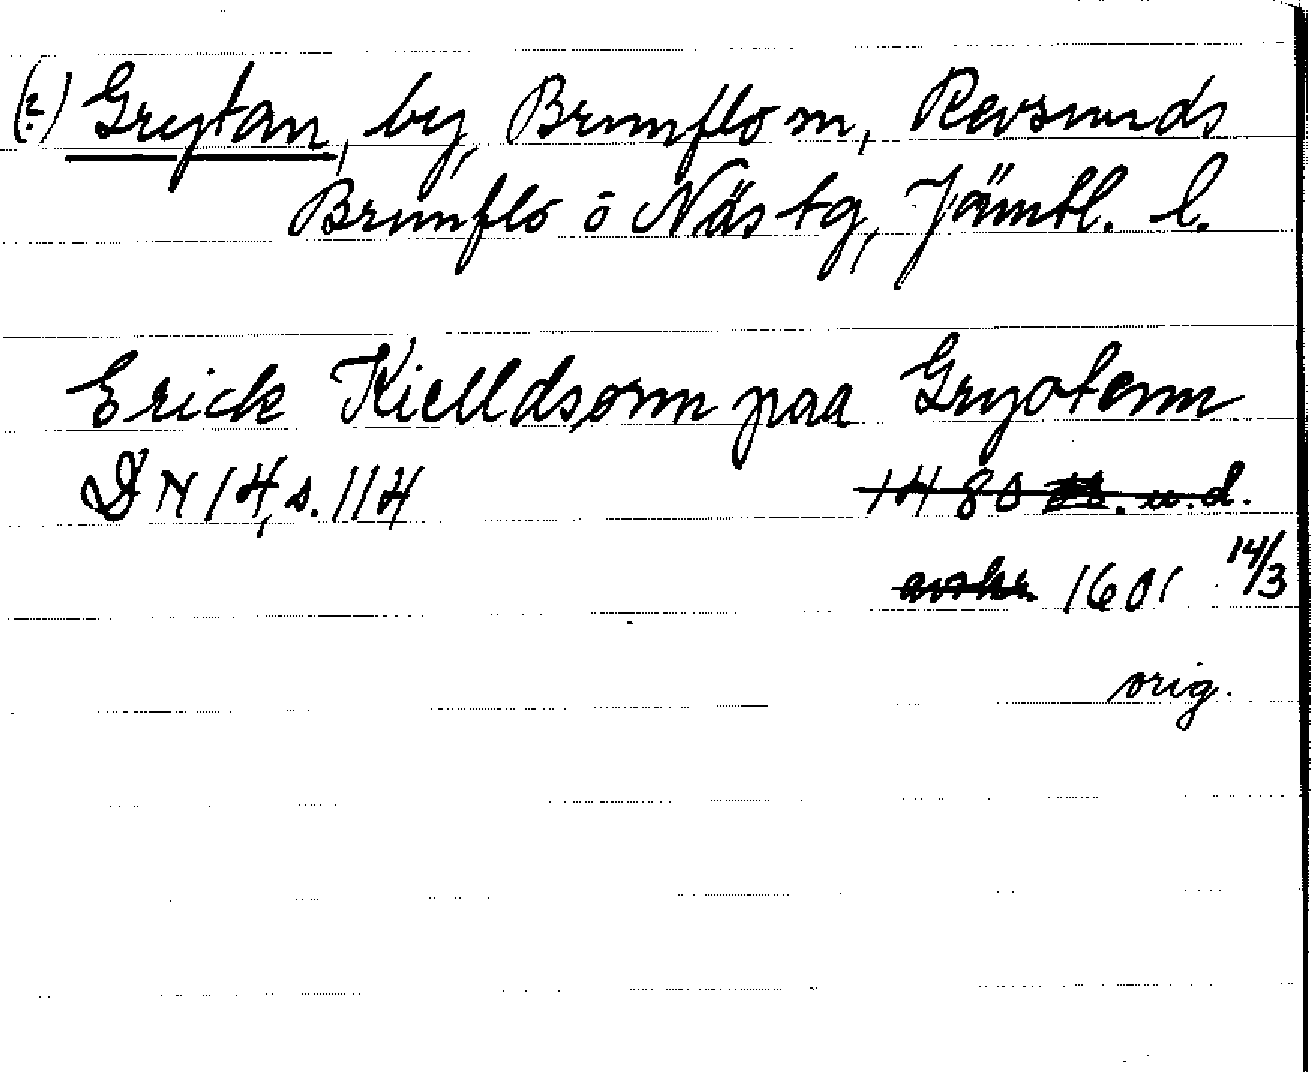 (?) Grytan, by, Brunflo sn, Revsunds
Brunflo o Näs tg, Jämtl. l.
Erick Kielldsønn paa Gryotenn
DN 14, s. 114 1480 u.d.
avskr. 1601 14/3
orig.